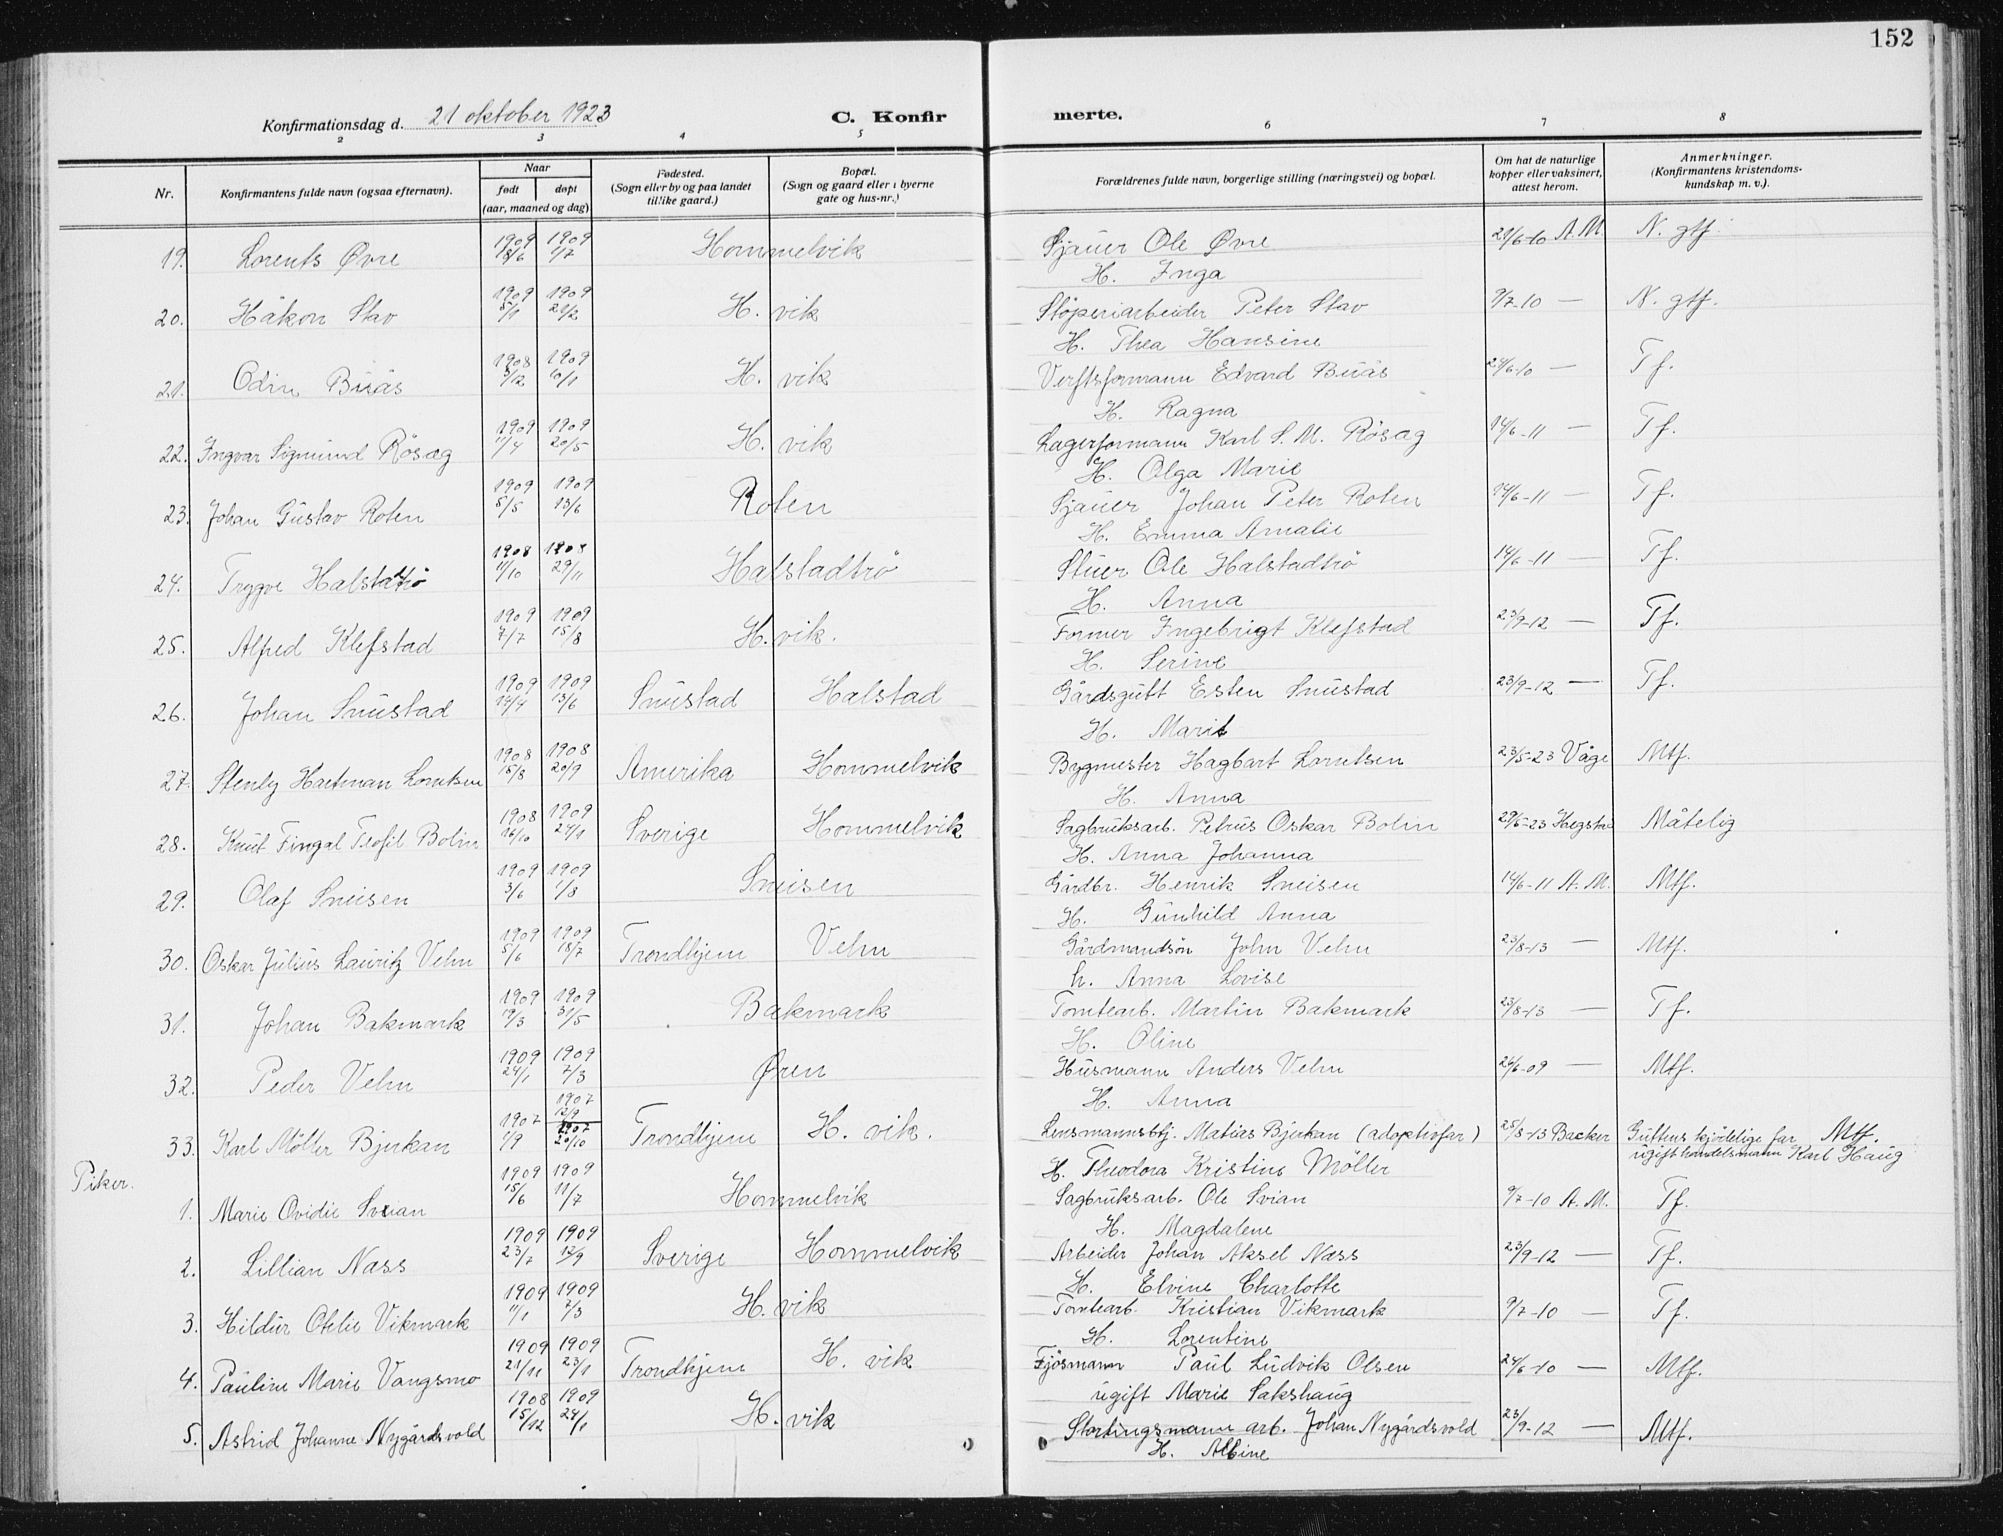 152
Konfirmationsdag d. 21 oktober 1923 C. Konfir merte.
2 3 4 5 6 7 8
Nr. Konfirmantens fulde navn (ogsaa efternavn). Naar født døpt (aar, maaned og dag) Fødested. (Sogn eller by og paa landet tillike gaard.) Bopæl. (Sogn og gaard eller i byerne gate og hus-nr.) Forældrenes fulde navn, borgerlige stilling (næringsvei) og bopæl. Om hat de naturlige kopper eller vaksinert, attest herom. Anmerkninger. (Konfirmantens kristendoms-kundskap m. v.).
19. Lorents Øvre 1909 1909 1/7 Hommelvik Sjauer Ole Øvre 21/6-10 A. M. N. gtf.
H. Inga
20. Håkon Stav 1909 5/1 1909 21/2 H. vik Støperiarbeider Peter Stav 9/7-10 — N. gtf.
H. Thea Hansine
21. Odin Buås 1908 5/12 1909 10/1 H. vik Verftsformann Edvard Buås 24/6-10 — Tf.
H. Ragna
22. Ingvar Sigmund Rösæg 1909 11/4 1909 20/5 H. vik Lagerformann Karl S. M. Rösæg 14/6-11 — Tf.
H. Olga Marie
23. Johan Gustav Roten 1909 5/5 1909 13/6 Roten Sjauer Johan Peter Roten 14/6-11 — Tf.
H. Emma Amalie
24. Trygve Halstadtrö 1908 11/10 1908 29/11 Halstadtrö Stuer Ole Halstadtrö 14/6-11 — Tf.
H. Anna
25. Alfred Klefstad 1909 7/7 1909 15/8 H. vik. Former Ingebrigt Klefstad 23/9-12 — Tf.
H. Serine
26. Johan Snustad 1909 14/4 1909 13/6 Snustad Halstad Gårdsgutt Esten Snustad 23/9-12 — Tf.
H. Marit
27. Stenly Hartman Lorntsen 1908 15/8 1908 20/9 Amerika Hommelvik Bygmester Hagbart Lorntsen 23/5-23 Våge Mtf.
H. Anna
28. Knut Fingal Teofil Bolin 1908 16/10 1909 24/1 Sverige Hommelvik Sagbruksarb. Petrus Oskar Bolin 29/5-23 Hegstad Måtelig
H. Anna Johanna
29. Olaf Sneisen 1909 3/6 1909 1/8 Sneisen Gårdbr. Henrik Sneisen 14/6-11 A. M. Mtf.
H. Gunhild Anna
30. Oskar Julius Lauritz Velvn 1909 5/6 1909 18/7 Trondhjem Velvn Gårdmandsön John Velvn 23/8-13 — Mtf.
h. Anna Lovise
31. Johan Bakmark 1909 19/3 1909 31/5 Bakmark Tomtearb. Martin Bakmark 23/8-13 — Tf.
H. Oline
32. Peder Velvn 1909 24/1 1909 7/3 Øren Husmann Anders Velvn 24/6-09 — Mtf.
H. Anna
33. Karl Möller Bjerkan 1907 1/9 1907 12/9 1907 20/10 Trondhjem H. vik. Lensmannsbtj. Matias Bjerkan (adoptivfar) 25/8-13 Backer Guttens kjödelige far Mtf.
ugift handelsmann Karl Haug
H. Theodora Kristine Möller
Piker.
1. Marie Ovidie Svian 1909 15/6 1909 11/7 Hommelvik Sagbruksarb. Ole Svian 9/7-10 A. M. Tf.
H. Magdalene
2. Lillian Næss 1909 23/7 1909 12/9 Sverige Hommelvik Arbeider Johan Aksel Næss 23/9-12 — Tf.
H. Elvine Charlotte
3. Hildur Otelie Vikmark 1909 11/1 1909 7/3 H. vik Tomtearb. Kristian Vikmark 9/7-10 — Tf.
H. Lorentine
4. Pauline Marie Vangsmo 1909 21/11 1909 23/1 Trondhjem H. vik Fjösmann Paul Ludvik Olsen 24/6-10 — Mtf.
ugift Marie Sakshaug
5. Astrid Johanne Nygårdsvold 1908 15/12 1909 24/1 H. vik Stortingsmann arb. Johan Nygårdsvold 23/9-12 — Mtf.
H. Albine